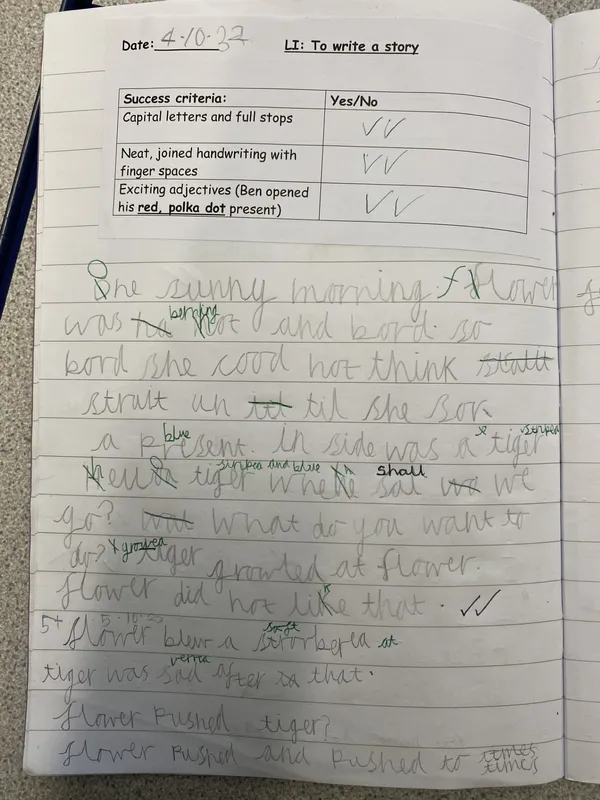 Date: 4.10.22 LI: To write a story
Success criteria: Yes/No
Capital letters and full stops
Neat, joined handwriting with
finger spaces
Exciting adjectives (Ben opened
his red, polka dot present)
One sunny morning. flower
was berning hot and bord. so
bord she cood not think
strait un til she sor
a blue present. in side was a tiger stripea
tiger stripea and blue where shall we
go? What do you want to
do? tiger growled at flower.
flower did not like that.
5+ 5.10.22
flower blew a soft strorberea at
tiger was verrea sad after that.
flower Pushed tiger?
flower Pushed and Pushed to times